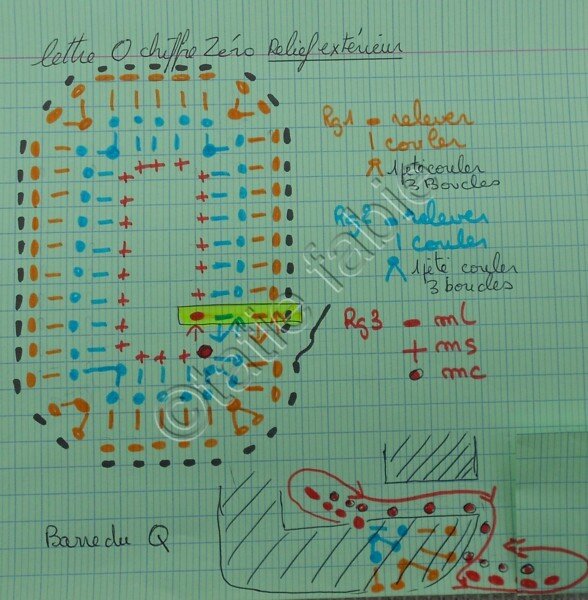 lettre O chiffre Zéro Relief extérieur
Rg1 - relever
| couler
1 jeté couler
3 Boucles
Rg2 - relever
| couler
1 jeté couler
3 boucles
Rg3 - ml
+ ms
• mc
Barre du Q